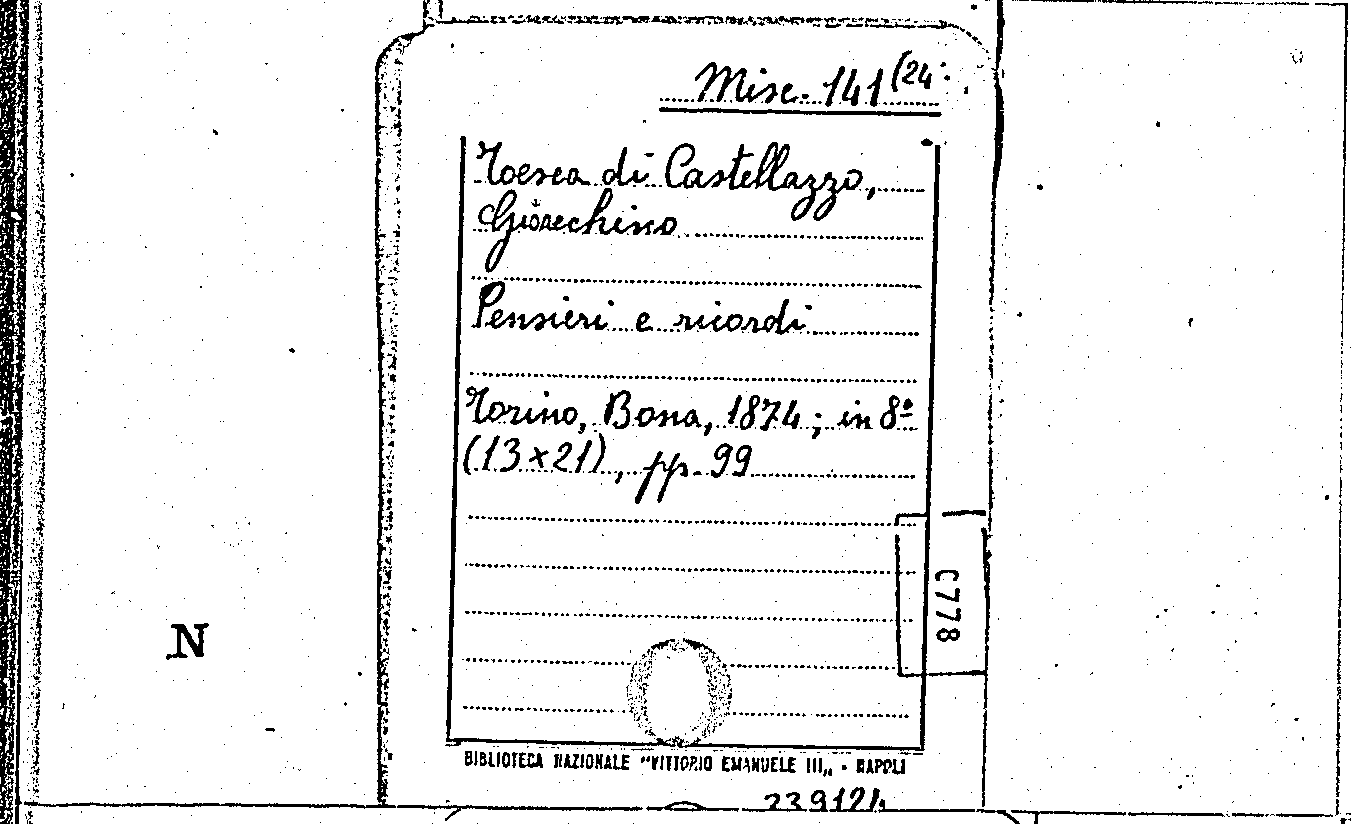 Misc. 141 (24
Toesca di Castellazzo,
Gioacchino
Pensieri e ricordi
Torino, Bona, 1874; in 8º
(13×21), pp. 99
C778
N
BIBLIOTECA NAZIONALE "VITTORIO EMANUELE III„ - NAPOLI
239124